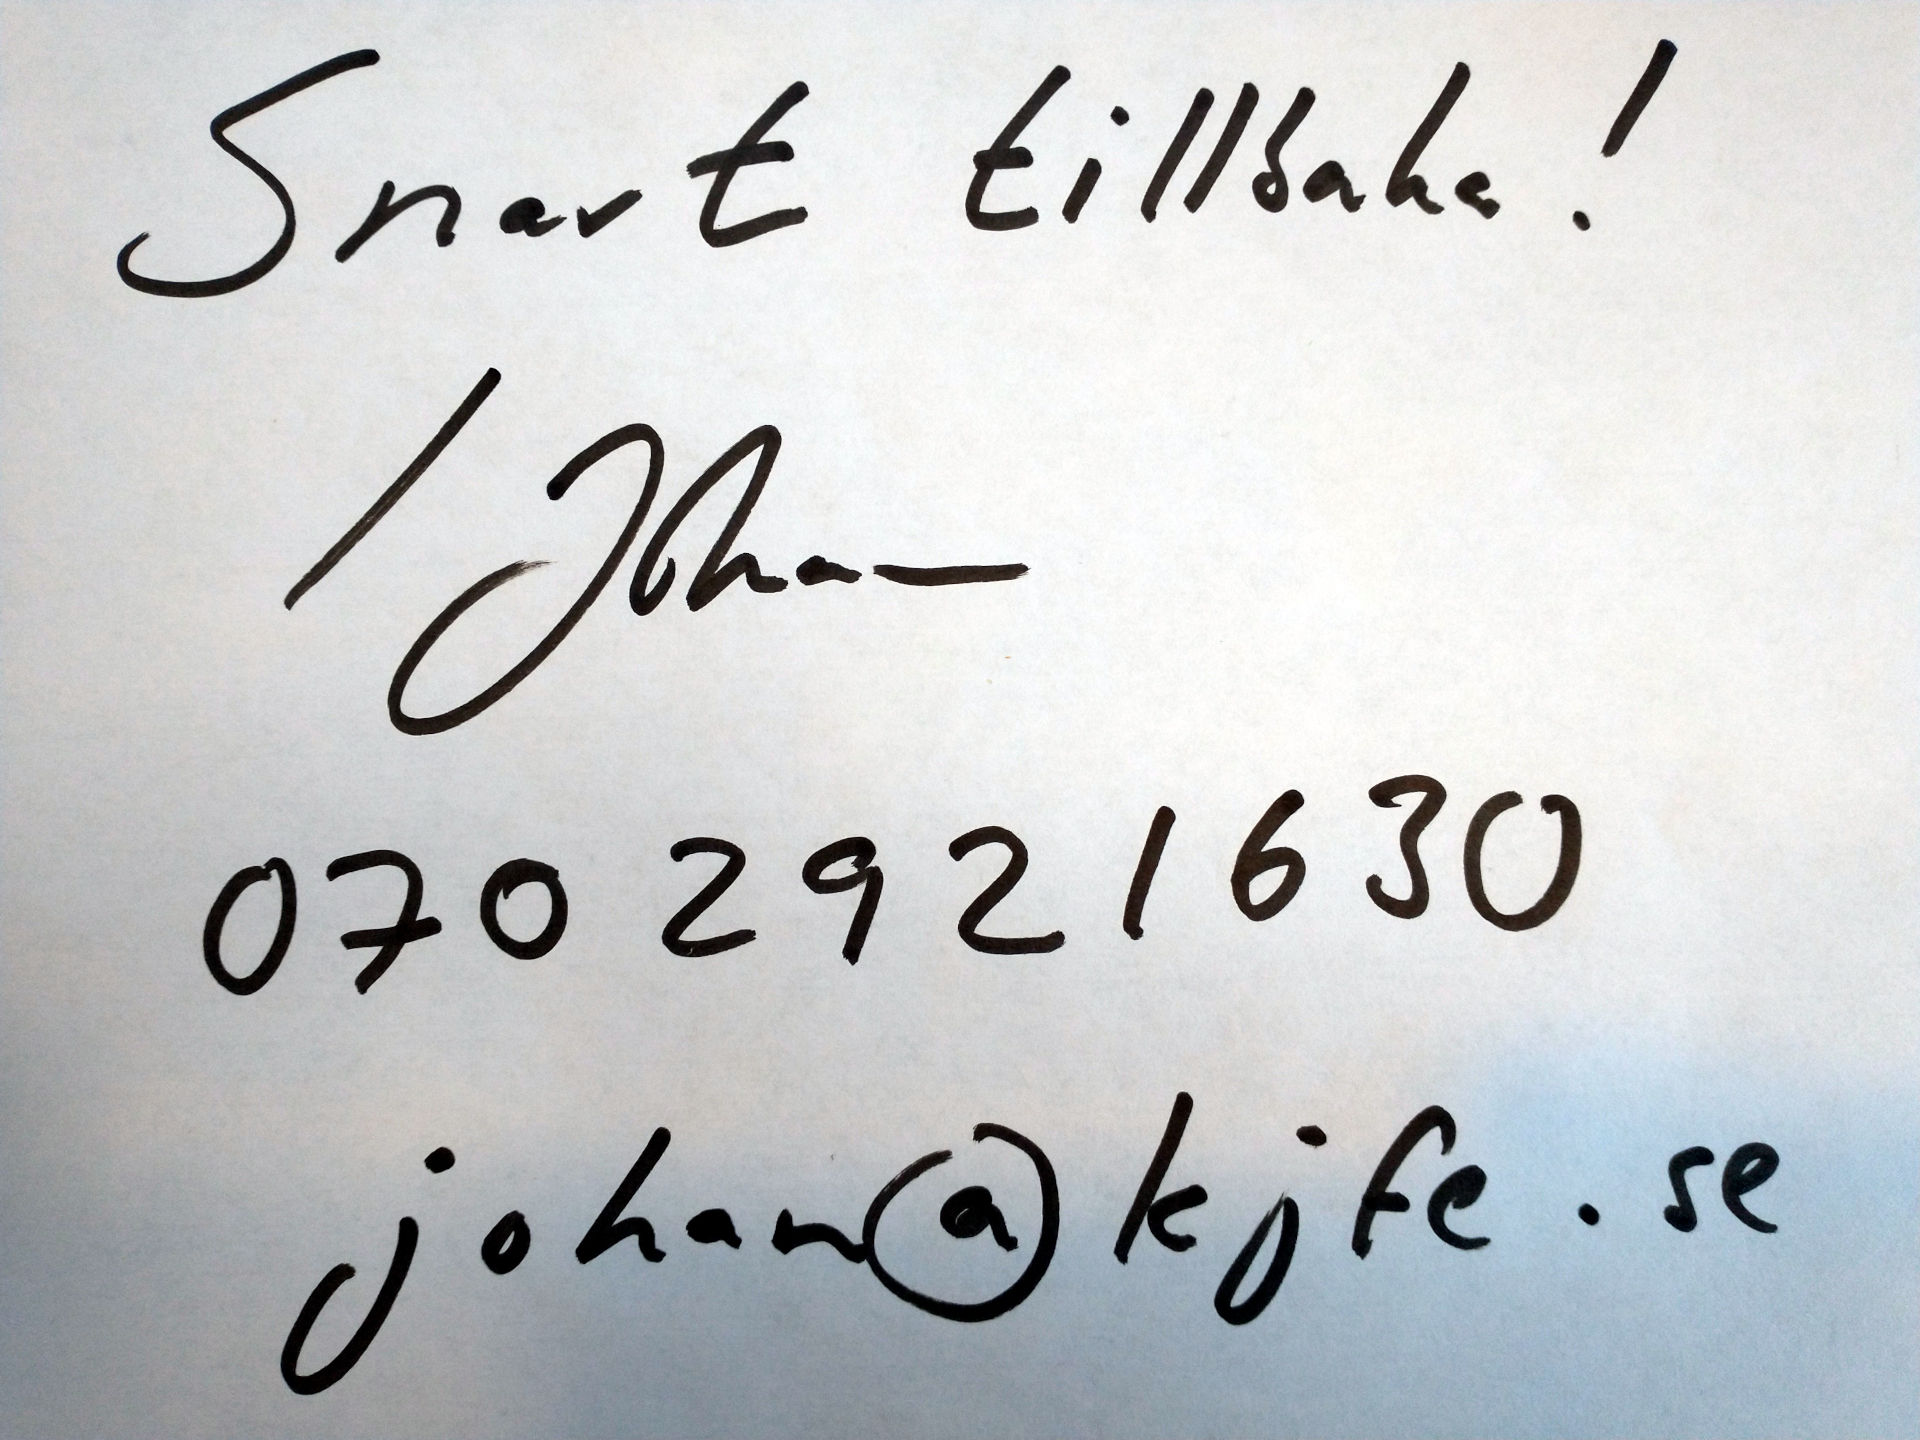 Snart tillbaka!
/Johan
070 2921630
johan@kjfe.se